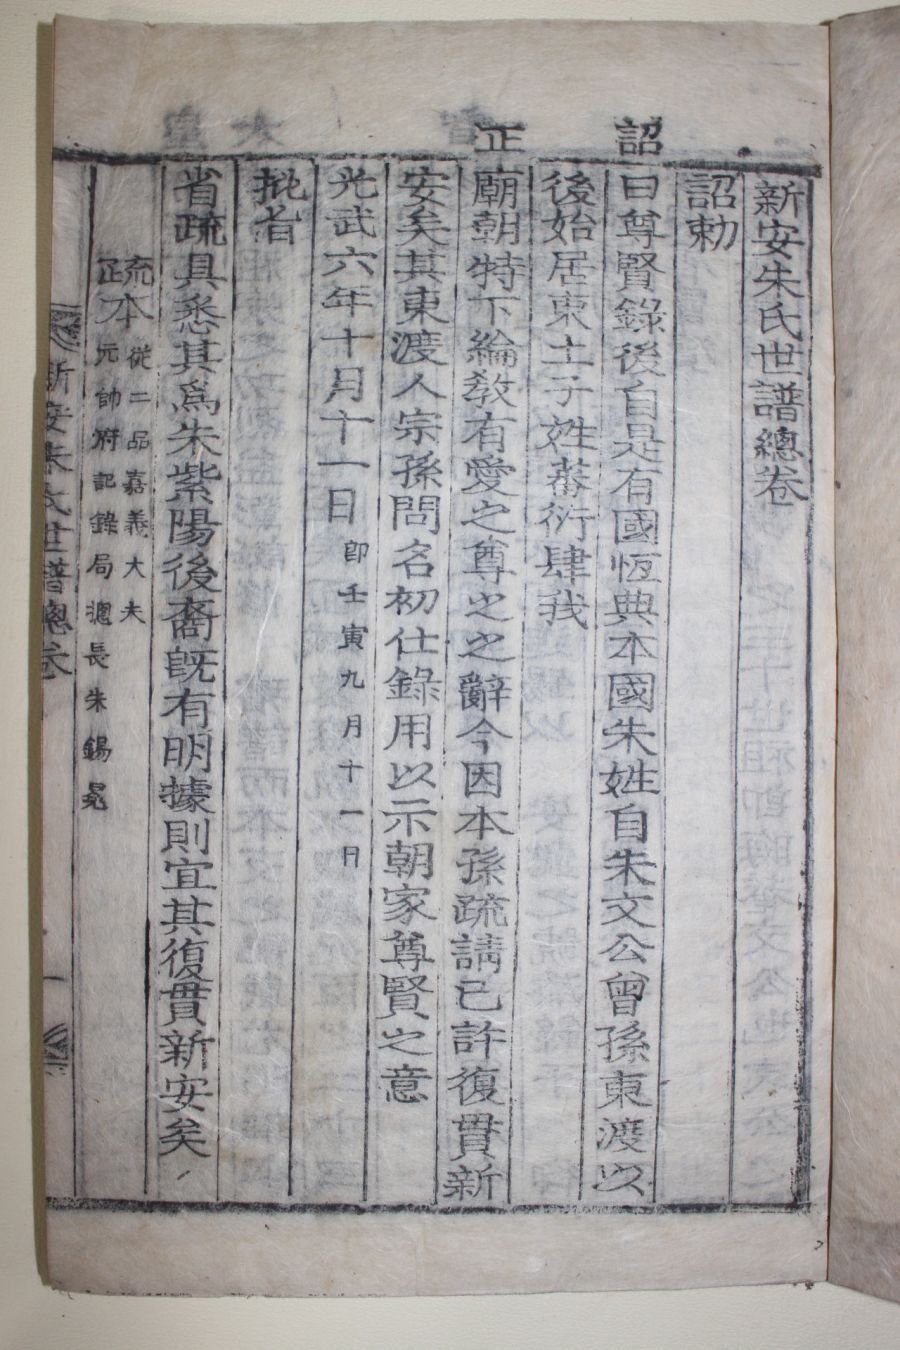 新安朱氏世譜總卷
詔勅
詔曰尊賢錄後自是有國恆典本國朱姓自朱文公曾孫東渡以
後始居東土子姓蕃衍肆我
正廟朝特下綸敎有愛之尊之之辭今因本孫疏請已許復貫新
安矣其東渡人宗孫問名初仕錄用以示朝家尊賢之意
光武六年十月十一日 卽壬寅九月十一日
批省
省疏具悉其爲朱紫陽後裔旣有明據則宜其復貫新安矣
疏本 從二品嘉義大夫
疏 元帥府記錄局總長朱錫冕
新安朱氏世譜總卷 一